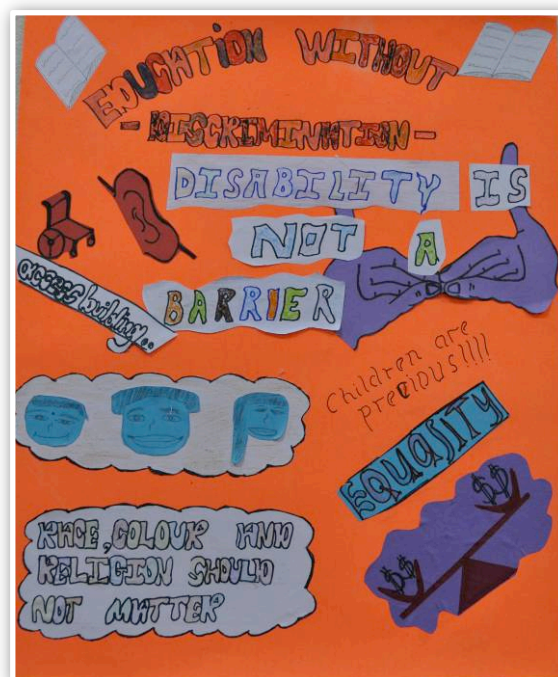 EDUCATION WITHOUT
- DISCRIMINATION -
DISABILITY IS
NOT A
BARRIER
access building..
Children are
precious!!!!
EQUALITY
RACE, COLOUR AND
RELIGION SHOULD
NOT MATTER
$$
$$